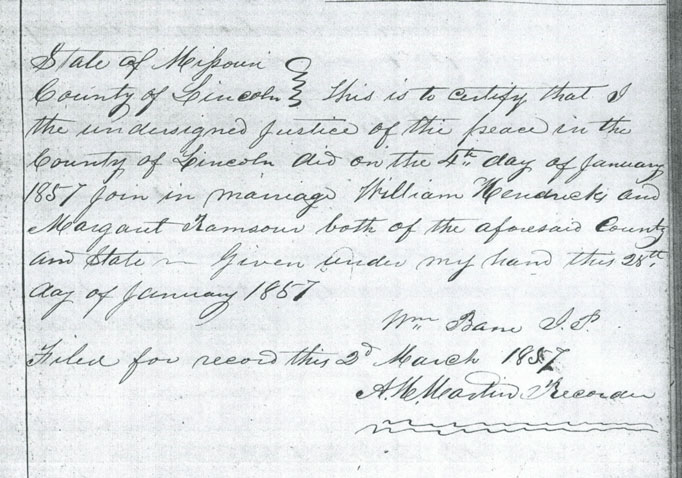 State of Missouri
County of Lincoln } This is to certify that I
the undersigned Justice of the peace in the
County of Lincoln did on the 4th day of January
1857 join in marriage William Hendricks and
Margaret Ramsour both of the aforesaid County
and State — Given under my hand this 28th
day of January 1857
Wm Bane J. P.
Filed for record this 2d March 1857
A. H. Martin Recorder